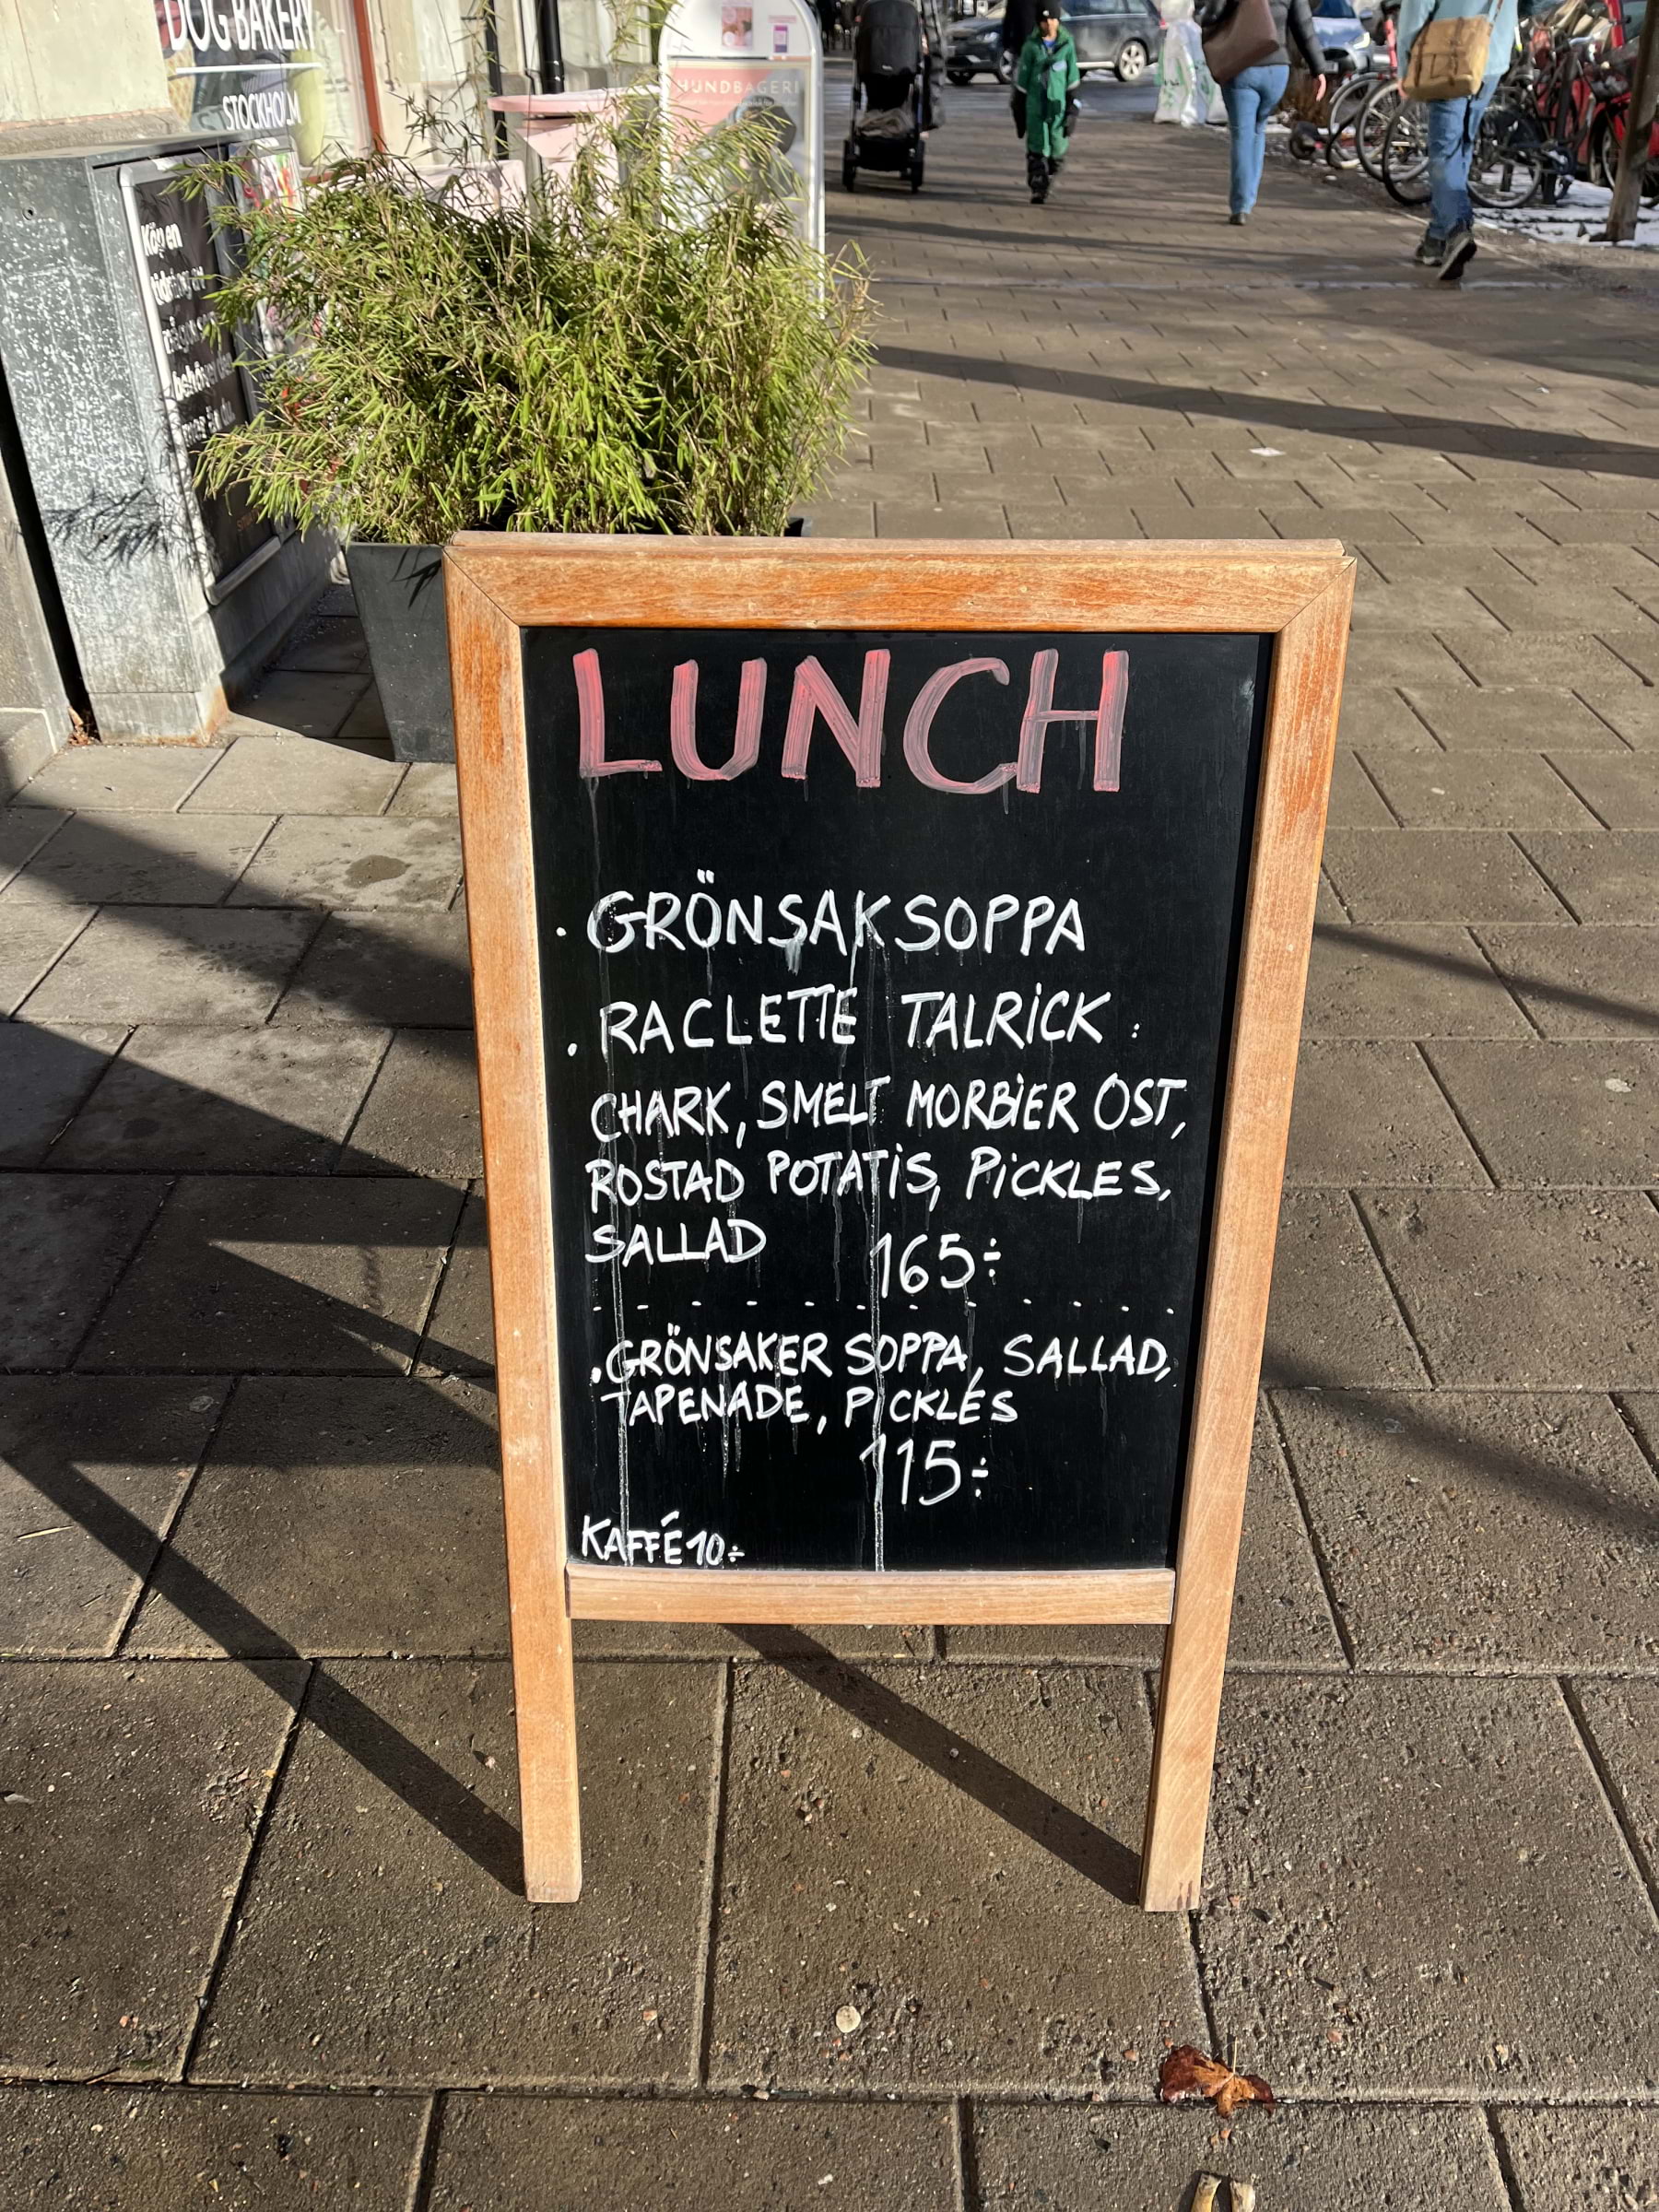 DOG BAKERY
STOCKHOLM
HUNDBAGERI
Köp en
LUNCH
. GRÖNSAKSOPPA
. RACLETTE TALRICK :
CHARK, SMELT MORBIER OST,
ROSTAD POTATIS, PICKLES,
SALLAD 165:-
. GRÖNSAKER SOPPA, SALLAD,
TAPENADE, PICKLÉS
115:-
KAFFÉ 10:-